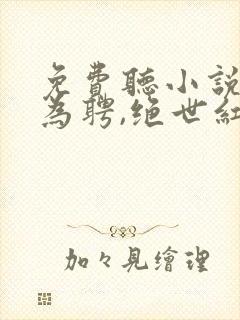 免費聽小說
為聘,绝世紅
加々見繪理